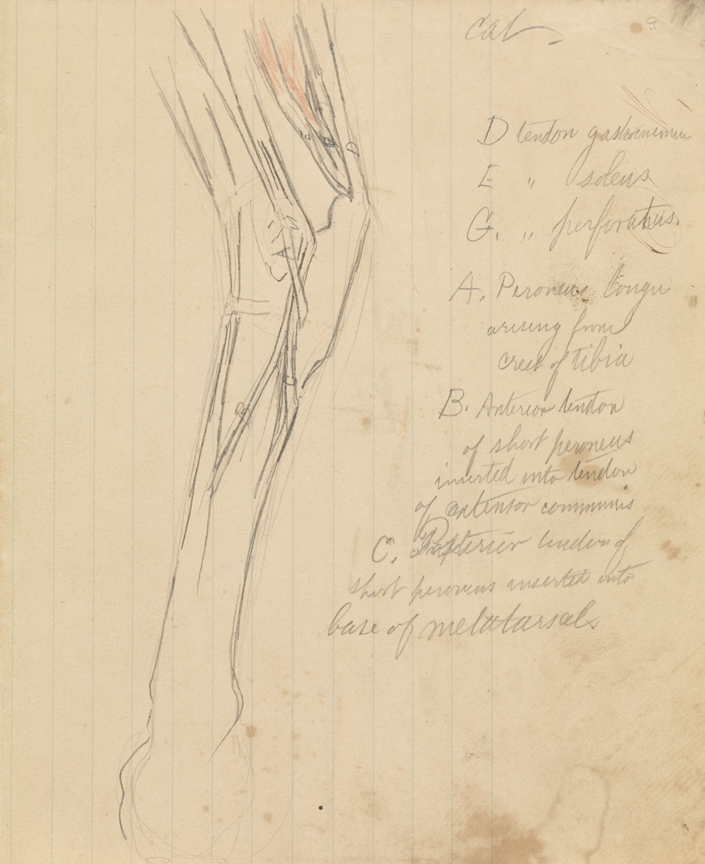 cat
D tendon gastrocnemius
E " soleus
G. " perforatus.
A. Peroneus longus
arising from
crest of tibia
B. Anterior tendon
of short peroneus
inserted into tendon
of extensor communis
C. Posterior tendon of
short peroneus inserted into
base of metatarsals
D
A
C
B